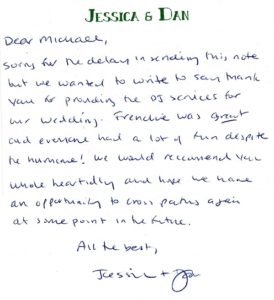 JESSICA & DAN
Dear Michael,
Sorry for the delay in sending this note
but we wanted to write to say thank
you for providing the DJ services for
our wedding. Frenchie was great
and everyone had a lot of fun despite
the hurricane! We would recommend you
whole heartidly and hope we have
an opportunity to cross paths again
at some point in the future.
All the best,
Jessica + Dan